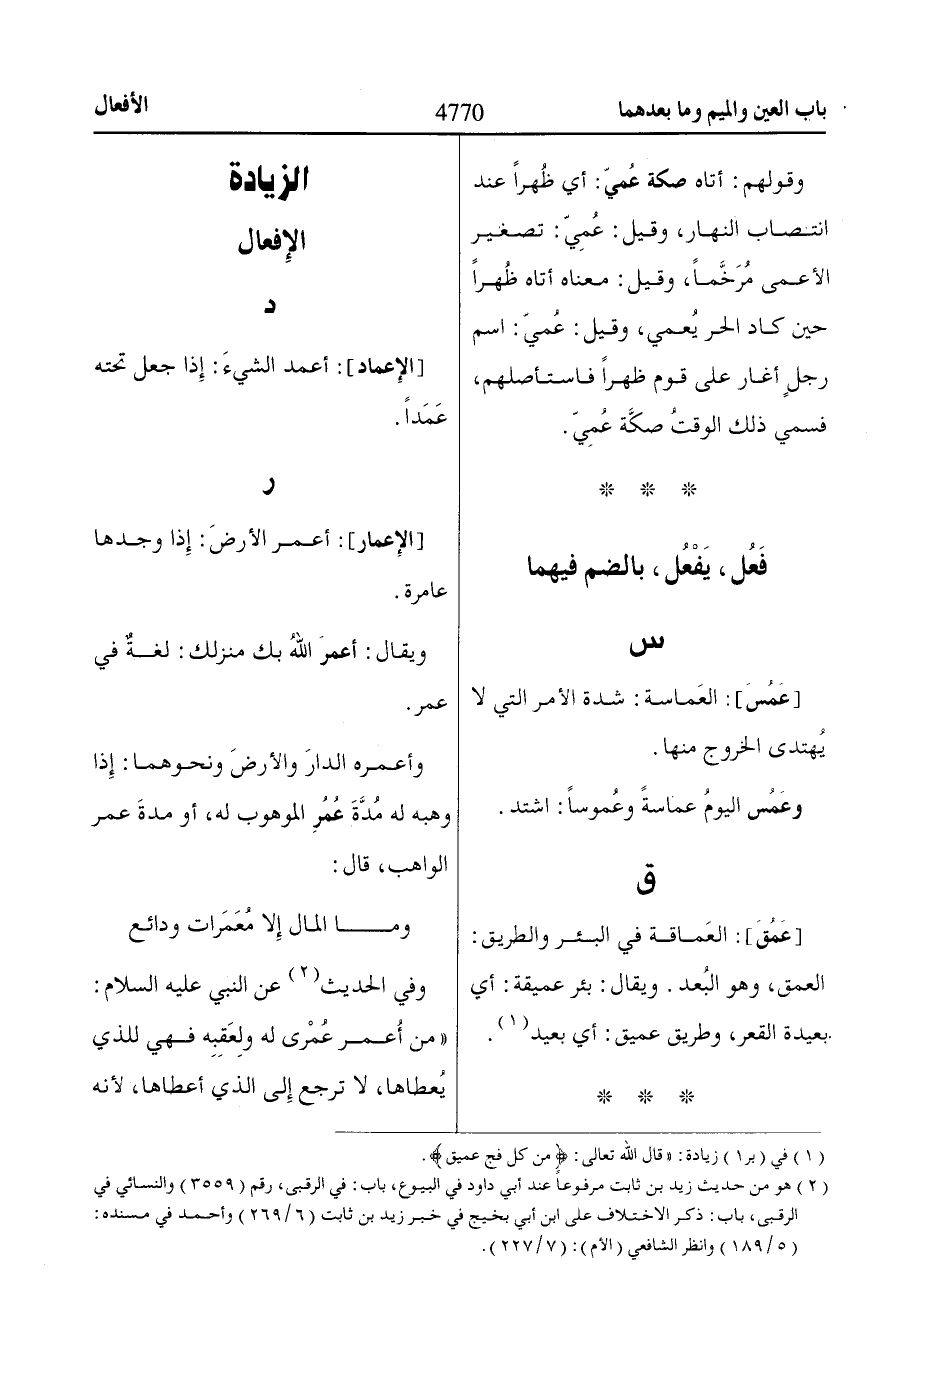 باب العين والميم وما بعدهما
4770
الأفعال
وقولهم: أتاه صكة عُميّ: أي ظُهراً عند
انتصاب النهار، وقيل: عُمِيّ: تصغير
الأعمى مُرَخَّماً، وقيل: معناه أتاه ظُهراً
حين كاد الحر يُعمي، وقيل: عُميّ: اسم
رجلٍ أغار على قوم ظهراً فاستأصلهم،
فسمي ذلك الوقتُ صكَّة عُميّ.
* * *
فَعُل، يَفْعُل، بالضم فيهما
س
[عَمُسَ]: العَماسة: شدة الأمر التي لا
يُهتدى الخروج منها.
وعَمُس اليومُ عماسةً وعُموساً: اشتد.
ق
[عَمُقَ]: العَماقة في البئر والطريق:
العمق، وهو البُعد. ويقال: بئر عميقة: أي
بعيدة القعر، وطريق عميق: أي بعيد(١).
* * *
الزيادة
الإفعال
د
[الإعماد]: أعمد الشيءَ: إذا جعل تحته
عَمَداً.
ر
[الإعمار]: أعمر الأرضَ: إذا وجدها
عامرة.
ويقال: أعمرَ اللهُ بك منزلك: لغةٌ في
عمر.
وأعمره الدارَ والأرضَ ونحوهما: إذا
وهبه له مُدَّةَ عُمُرِ الموهوب له، أو مدةَ عمر
الواهب، قال:
وما المال إلا مُعْمَرات ودائع
وفي الحديث(٢) عن النبي عليه السلام:
«من أُعمر عُمْرى له ولعَقِبِه فهي للذي
يُعطاها، لا ترجع إلى الذي أعطاها، لأنه
(١) في (بر١) زيادة: «قال الله تعالى: ﴿من كل فج عميق﴾.
(٢) هو من حديث زيد بن ثابت مرفوعاً عند أبي داود في البيوع، باب: في الرقبى، رقم (٣٥٥٩) والنسائي في
الرقبى، باب: ذكر الاختلاف على ابن أبي بخيج في خبر زيد بن ثابت (٢٦٩/٦) وأحمد في مسنده:
(١٨٩/٥) وانظر الشافعي (الأم): (٢٢٧/٧).